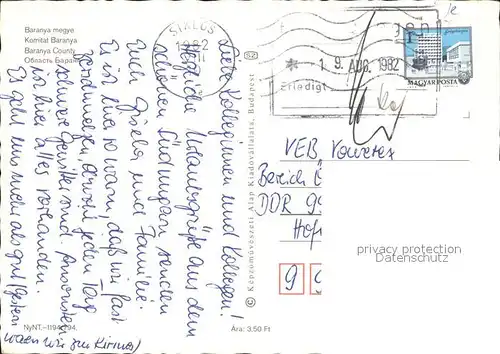 Baranya megye
Komitat Baranya
Baranya County
Область Бараня
Liebe Kolleginnen und Kollegen!
Herzliche Urlaubsgrüße aus dem
schönen Südungarn senden
Euch Gisela und Familie.
Es ist hier so warm, daß wir fast
zerschmelzen, obwohl jeden Tag
schwere Gewitter sind. Ansonsten
ist hier alles vorhanden.
Es geht uns mehr als gut (gestern
waren wir zur Kirmes)
NyNT.–1194/94.
Ára: 3,50 Ft
© Képzőművészeti Alap Kiadóvállalata, Budapest
SIKLÓS
19. AUG. 1982
Erledigt
MAGYAR POSTA
VEB
Bereich
DDR
privacy protection
Datenschutz